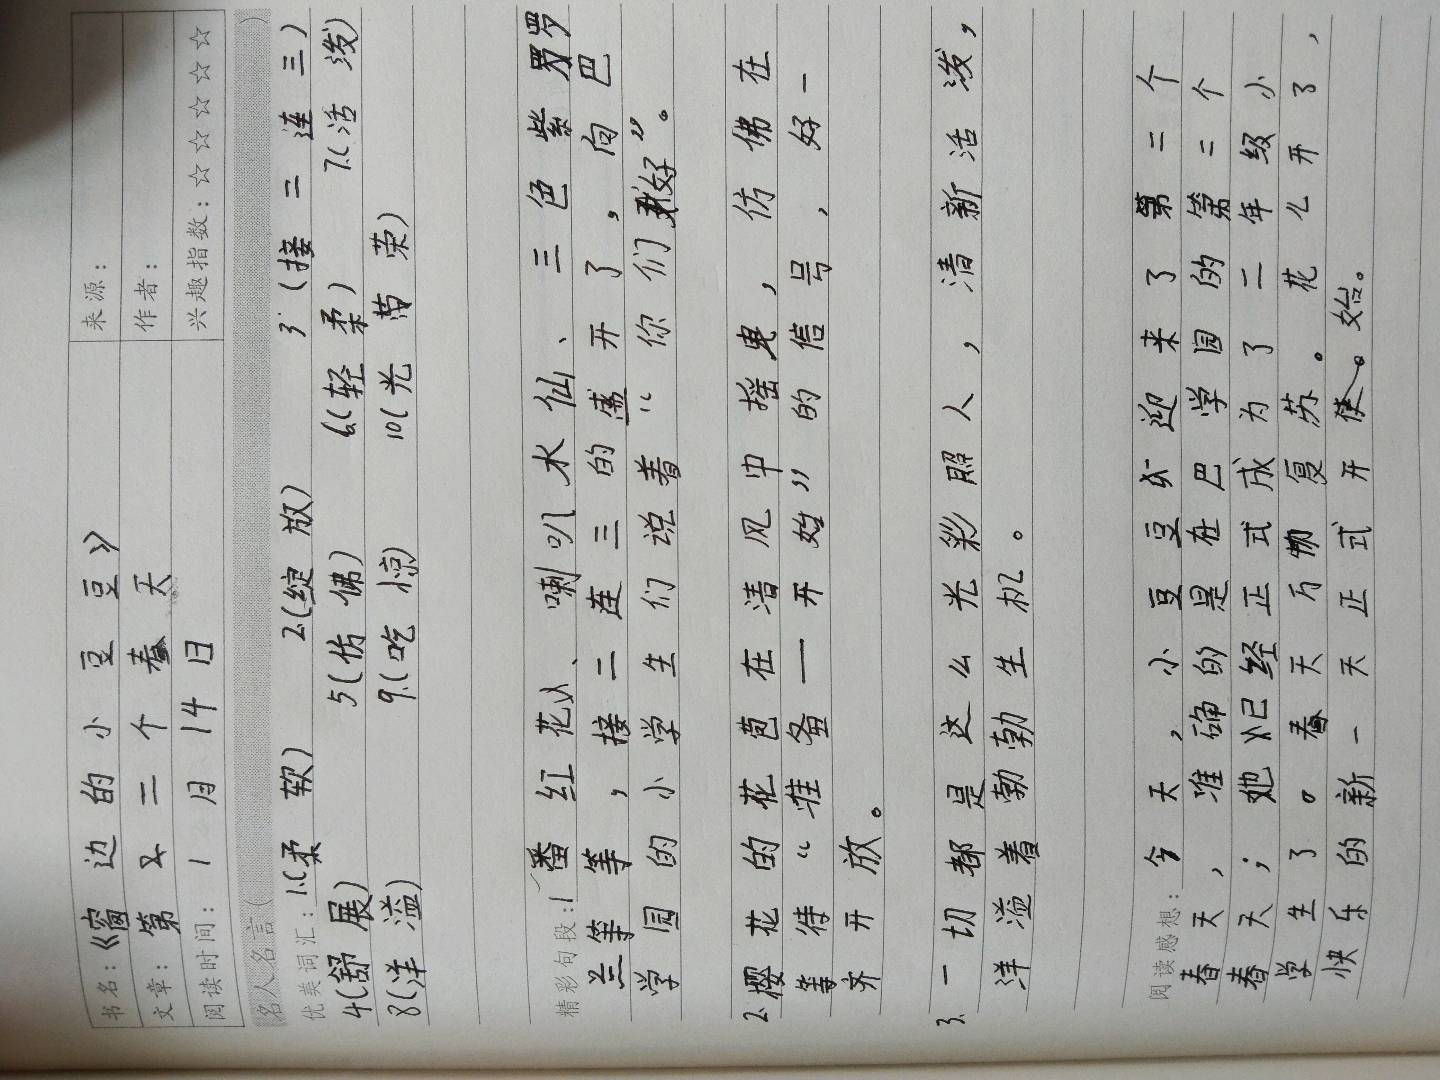 书名：《窗边的小豆豆》
来源：
文章：第二个春天
作者：
阅读时间：1月14日
兴趣指数：☆☆☆☆☆
名人名言（ ）
优美词汇：1.(柔软) 2.(绽放) 3.(接二连三)
4(舒展) 5(仿佛) 6.(轻柔) 7.(活泼)
8(洋溢) 9.(吃惊) 10(光荣)
精彩句段：1番红花、喇叭水仙、三色紫罗
兰等等，接二连三的盛开了，向巴
学园的小学生们说着“你们好”。
2.樱花的花苞在清风中摇曳，仿佛在
等待“准备——开始”的信号，好一
齐开放。
3.一切都是这么光彩照人，清新活泼，
洋溢着勃勃生机。
阅读感想：今天，小豆豆迎来了第二个
春天，准确的是在巴学园的第二个
春天；她已经正式成为了二年级小
学生了。春天万物复苏。花么开了，
快乐的新一天正式开始。